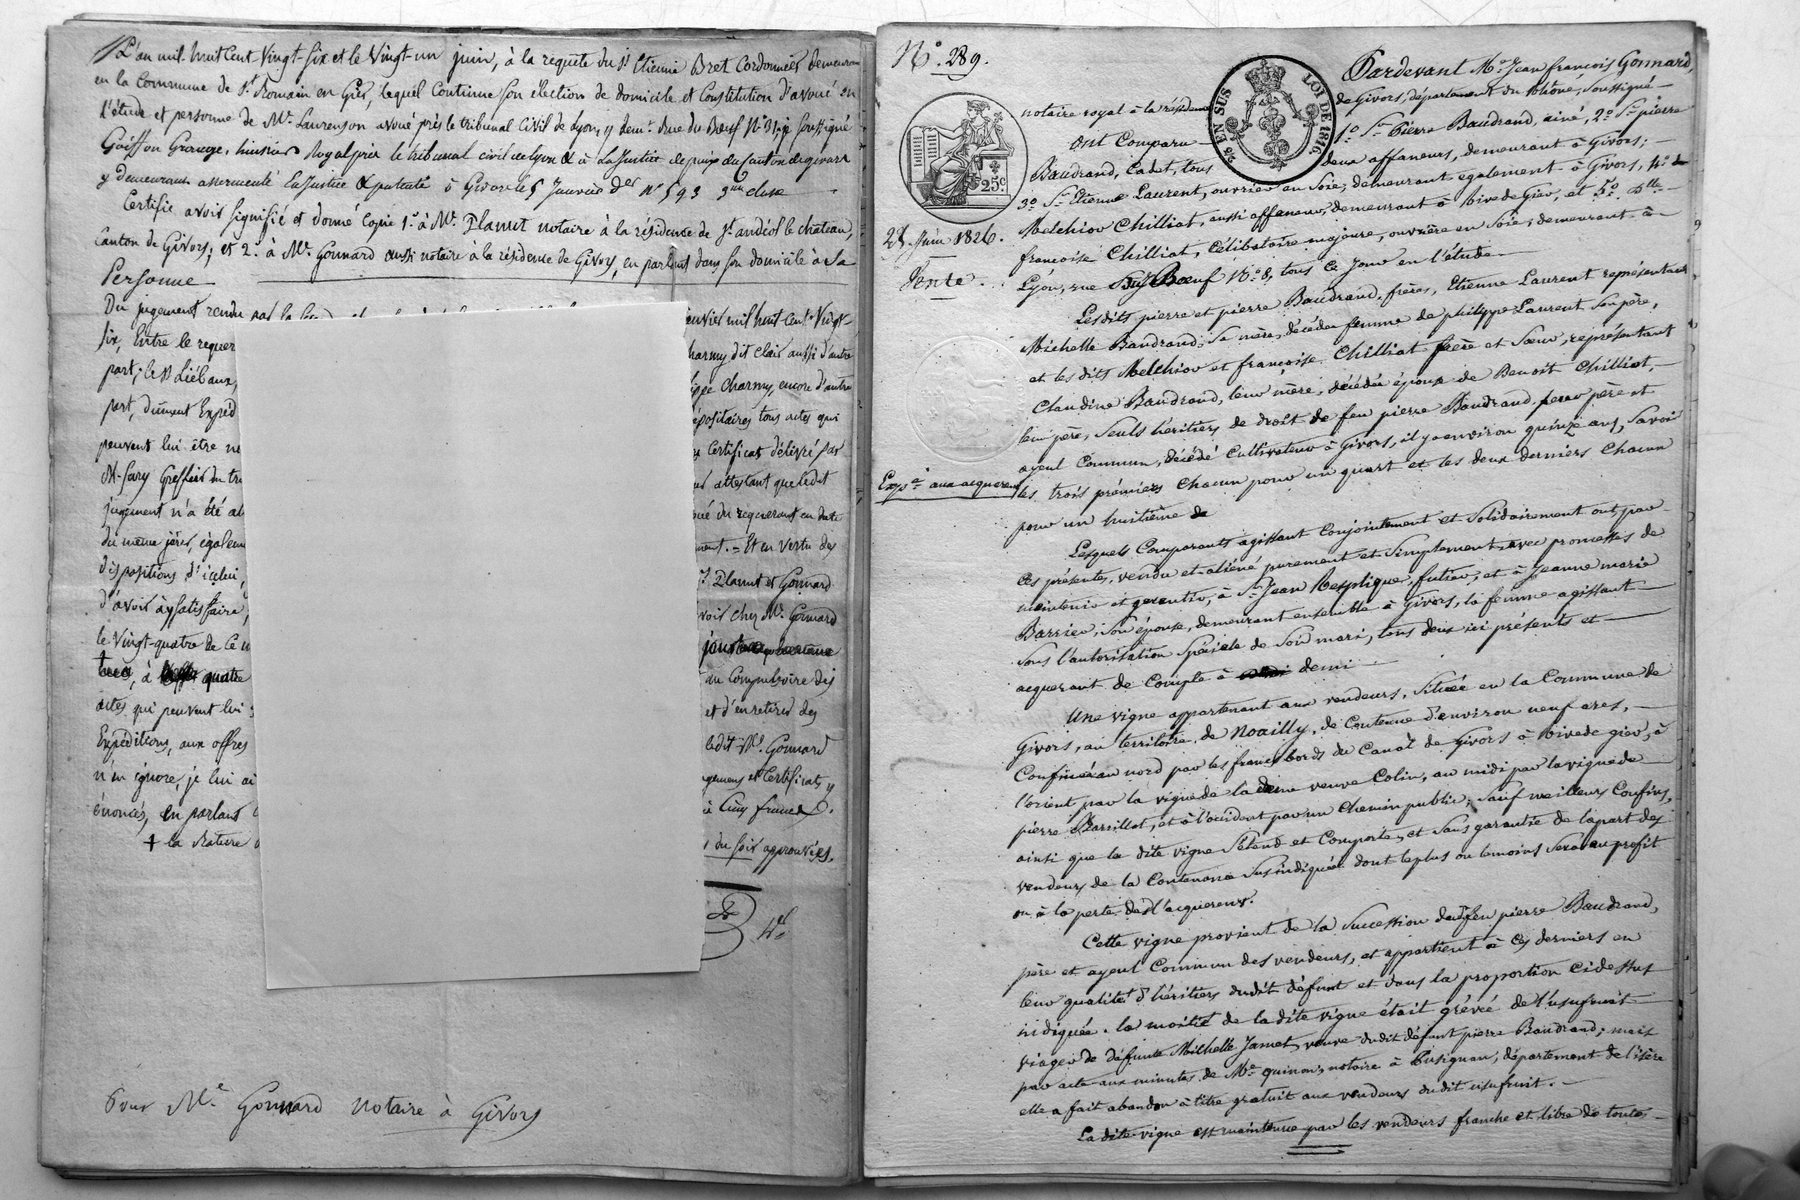 L'an mil huit Cent Vingt-six et le Vingt-un juin, à la requête du Sr Etienne Bret Cordonnier demeurant
en la Commune de St Romain en Gier, lequel Continue son élection de domicile et Constitution d'avoué en
l'étude et personne de Mr. Laurenson avoué près le tribunal Civil de Lyon, y demt. rue du Bœuf No 31, je soussigné
huissier Royal près le tribunal civil de Lyon & à la Justice de paix du Canton de givors
y demeurant assermenté En Justice & patenté à Givors le 5 Janvier der No 593 3me classe
Certifie avoir signifié et donné Copie 1o. à Me. Plamet notaire à la résidence de St andéol le chateau,
Canton de Givors; et 2o. à Me. Gonnard aussi notaire à la résidence de Givors, en parlant dans son domicile à Sa
Personne
Du jugement rendu par la janvier mil huit cent Vingt-
six, Entre le requer charmy dit clair aussi d'autre
part; le Sr Liébaux, charmy, encore d'autre
part, dûment Expéd dépositaires tous actes qui
peuvent lui être né Certificat délivré par
Mr Sary Greffier du tri attestant que ledit
jugement n'a été at du requerant en date
du meme jour, égaleme = Et en vertu des
dispositions d'icelui, Plamet et Gonnard
d'avoir à y satisfaire, voir chez Me. Gonnard
le Vingt-quatre de ce m
à quatre au Compulsoire des
actes qui peuvent lui et d'en retirer des
Expéditions, aux offres ledit Me. Gonnard
n'en ignore, je lui ai jugement et Certificats y
énoncés, en parlant à Cinq francs
+ la Nature du soir approuvés.
Pour Me. Gonnard notaire à Givors
No. 289.
25 EN SUS
LOI DE 1816
25c
23 Juin 1826.
Vente.
Expon aux acquereurs
Pardevant Me Jean françois Gonnard,
notaire royal à la résidence de Givors, département du Rhône, soussigné
Ont Comparu 1o. Sr Pierre Baudrand, ainé, 2o. Sr pierre
Baudrand, Cadet, tous deux affaneurs, demeurant à Givors;
3o. Sr Etienne Laurent, ouvrier en Soie, demeurant également à Givors, 4o.
Melchior Chilliat, aussi affaneur, demeurant à Rive de Gier, et 5o. Dlle
françoise Chilliat, Célibataire majeure, ouvrière en Soie, demeurant à
Lyon, rue Bœuf No. 8, tous Ce Jour en l'étude
Lesdits pierre et pierre Baudrand, frères, Etienne Laurent représentant
Michelle Baudrand, Sa mère, décédée femme de philippe Laurent Son père,
et les dits Melchior et françoise Chilliat frère et Sœur, représentant
Claudine Baudrand, leur mère, décédée épouse de Benoit Chilliat,
leur père, Seuls héritiers de droit de feu pierre Baudrand, père et
ayeul Commun, décédé Cultivateur à Givors, il y a environ quinze ans, Savoir
les trois prémiers Chacun pour un quart et les deux derniers Chacun
pour un huitième
Lesquels Comparants agissant Conjointement et Solidairement ont par
Ces présentes, vendu et aliéné purement et Simplement, avec promesses de
maintenir et garantir, à Sr Jean Resplique, futier, et à Jeanne marie
Barrier, Son épouse, demeurant ensemble à Givors, la femme agissant
sous l'autorisation Spéciale de Son mari, tous deux ici présents et
acquerant de Compte à demi
Une vigne appartenant aux vendeurs, Située en la Commune de
Givors, au territoire de Noailly, de Contenue d'environ neuf ares,
Confinée au nord par les francs bords du Canal de Givors à Rive de gier, à
l'orient par la vigne de la veuve Colin, au midi par la vigne de
pierre Barillot, et à l'occident par un Chemin public; Sauf meilleurs Confins,
ainsi que la dite vigne S'étend et Comporte, et Sans garantie de la part des
vendeurs de la Contenance Susindiquée dont le plus ou le moins Sera au profit
ou à la perte des acquereurs.
Cette vigne provient de la Succession dudit feu pierre Baudrand,
père et ayeul Commun des vendeurs, et appartient à Ces derniers en
leur qualité d'héritiers dudit défunt et dans la proportion Cidessus
indiquée. la moitié de la dite vigne était grévée de l'usufruit
viager de défunte Michelle Jamet, veuve dudit défunt pierre Baudrand; mais
par acte aux minutes de Me quinon, notaire à Pusignan, département de l'isère
elle a fait abandon à titre gratuit aux vendeurs dudit usufruit.
La dite vigne est maintenue par les vendeurs franche et libre de toute